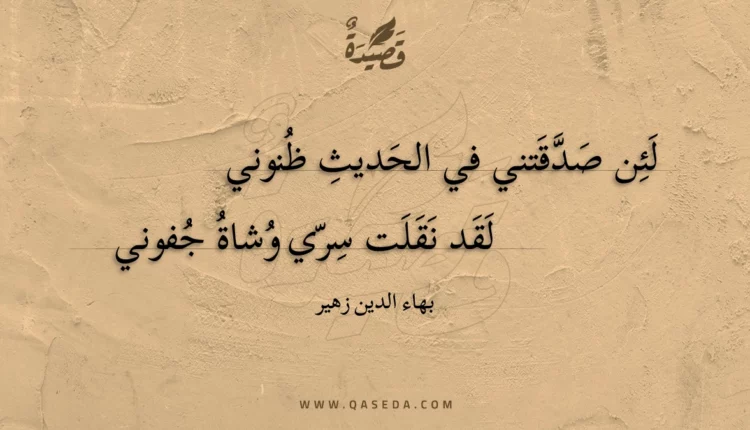 قَصيدَةٌ
لَئِن صَدَّقَتني في الحَديثِ ظُنوني
لَقَد نَقَلَت سِرّي وُشاةُ جُفوني
بهاء الدين زهير
WWW.QASEDA.COM